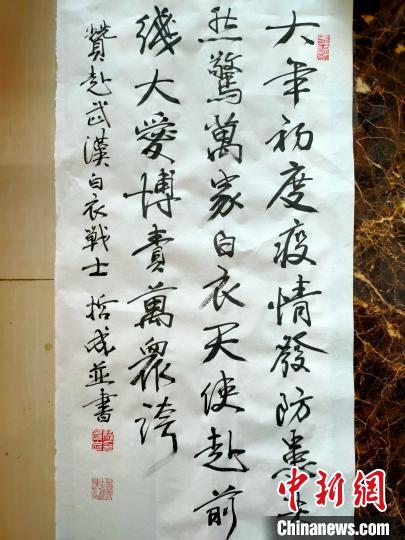 大年初度疫情發防患
然驚萬家白衣天使赴前
綫大愛博萬眾誇
贊赴武漢白衣戰士 哲成並書
中新网
www.chinanews.com